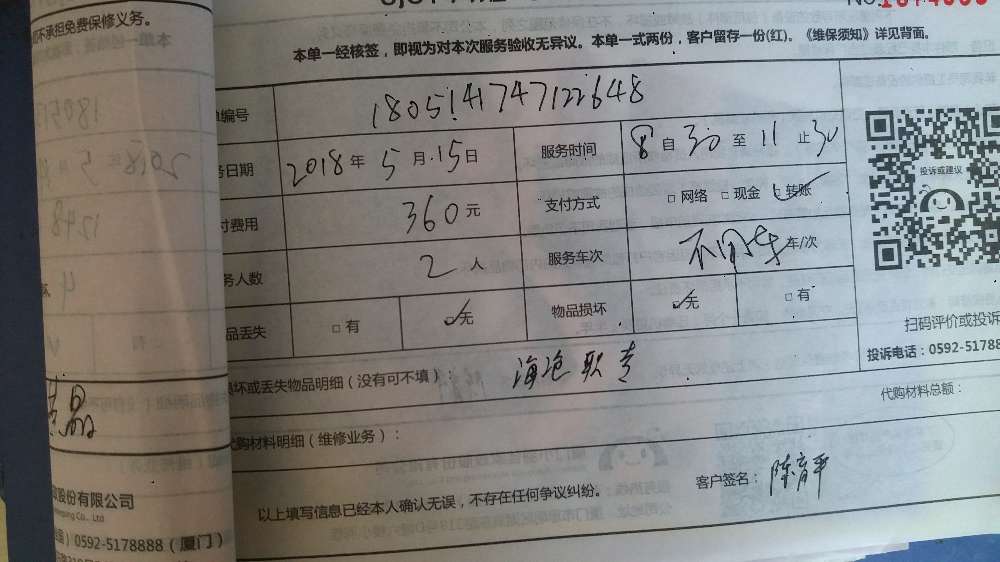 不承担免费保修义务。
本单一经核签，即视为对本次服务验收无异议。本单一式两份，客户留存一份(红)。《维保须知》详见背面。
编号 1805141747122648
日期 2018年5月15日 服务时间 8自30至11止30
付费用 360元 支付方式 □网络 □现金 □转账
务人数 2人 服务车次 不用车 车/次
品丢失 □有 □无 物品损坏 □无 □有
投诉或建议
扫码评价或投诉
投诉电话：0592-517888
损坏或丢失物品明细（没有可不填）： 海沧职专
代购材料总额：
代购材料明细（维修业务）：
客户签名：陈育平
以上填写信息已经本人确认无误，不存在任何争议纠纷。
股份有限公司
Co., Ltd
0592-5178888（厦门）